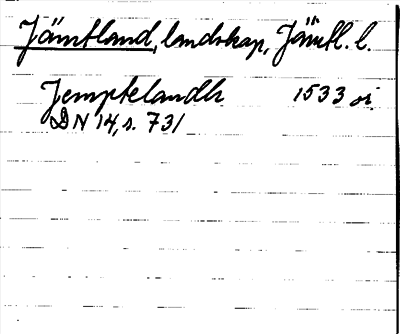 Jämtland, landskap, Jämtl. l.
Jemptelandh 1533 or.
DN 14, s. 731